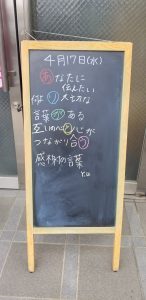 4月17日(水)
あなたに
伝えたい
何より大切な
言葉がある
互いの心と心が
つながり合う
感謝の言葉